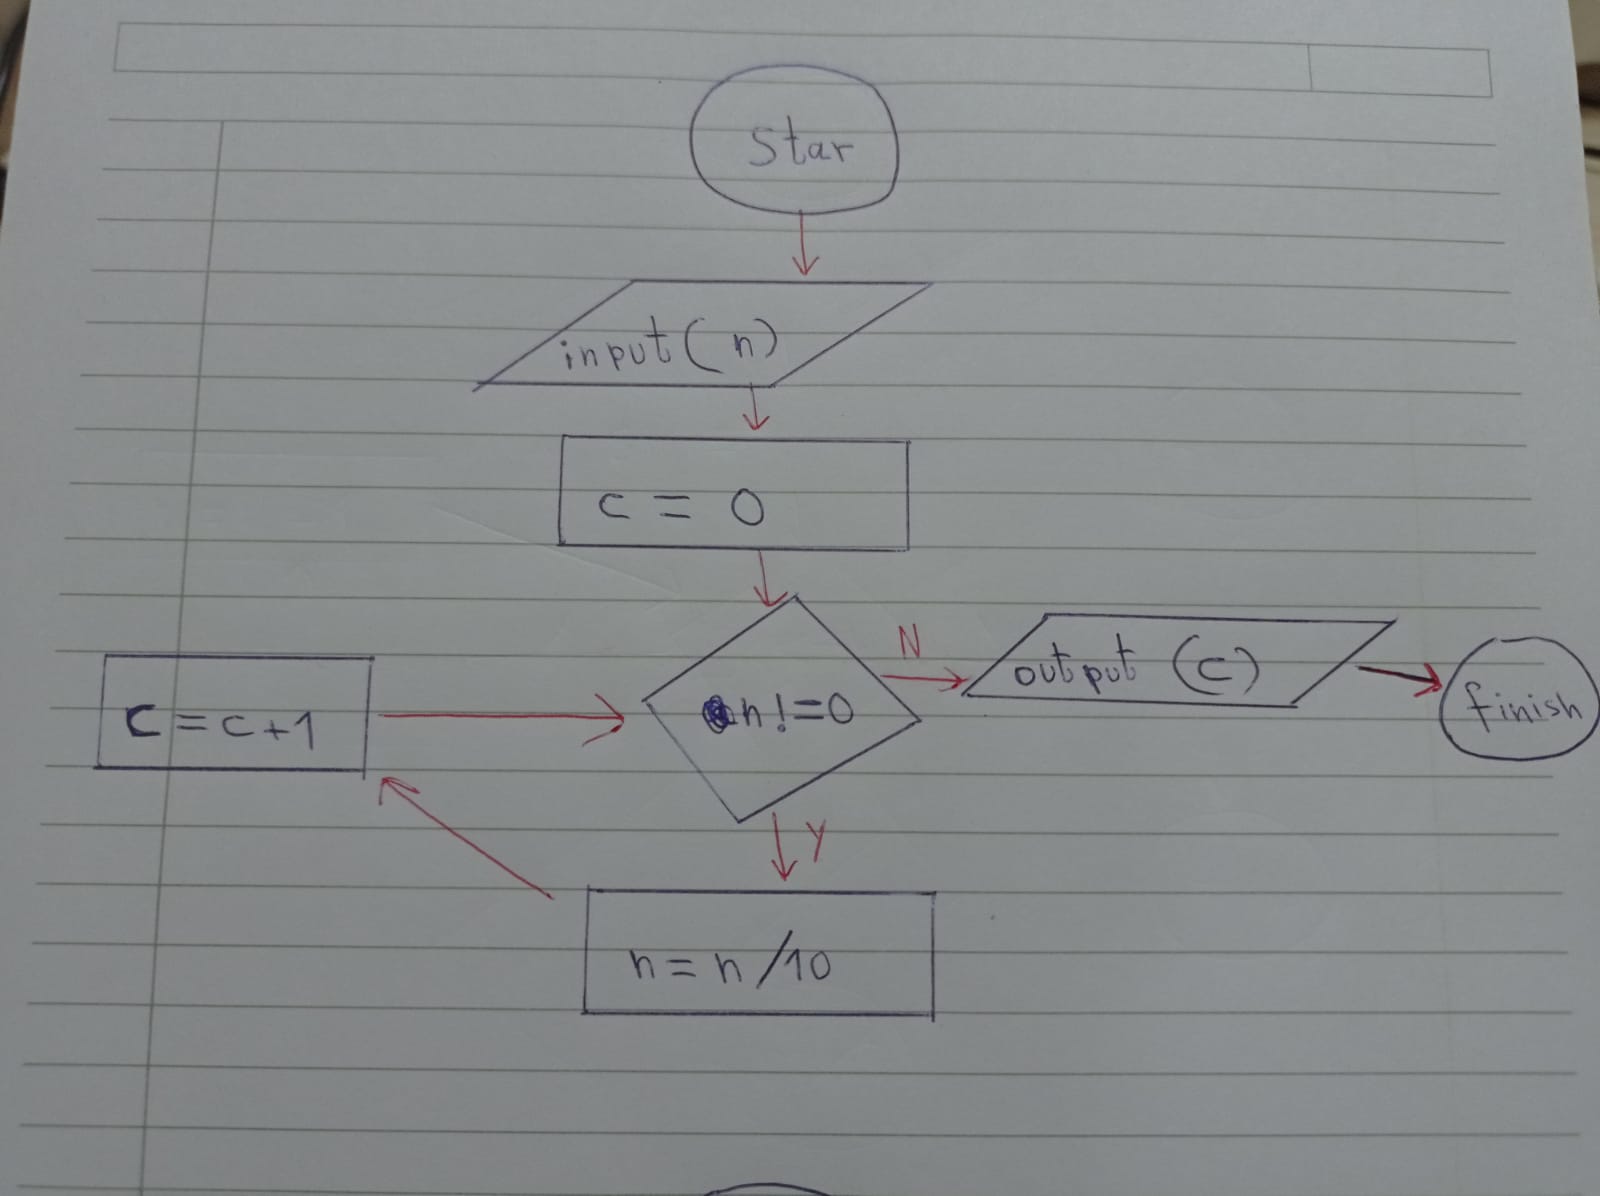 Star
input(n)
c = 0
N
output (c)
finish
n!=0
c=c+1
Y
n=n/10